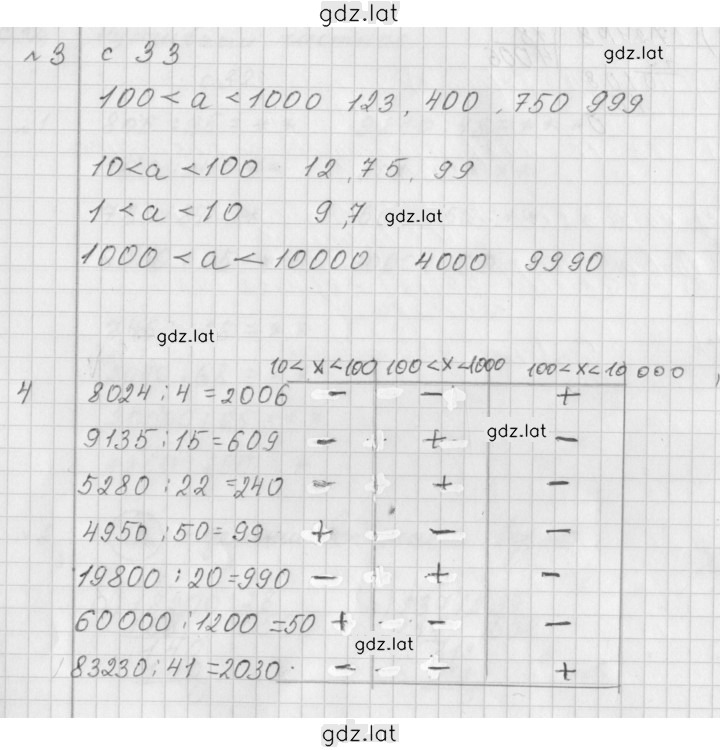 gdz.lat
№3 с 33 gdz.lat
100<a<1000 123, 400, 750 999
10<a<100 12, 75, 99
1<a<10 9,7 gdz.lat
1000<a<10000 4000 9990
gdz.lat
10<x<100 100<x<1000 100<x<10 000
4 8024:4=2006 - - +
9135:15=609 - + - gdz.lat
5280:22=240 - + -
4950:50=99 + - -
19800:20=990 - + -
60000:1200=50 + - -
gdz.lat
83230:41=2030 - - +
gdz.lat